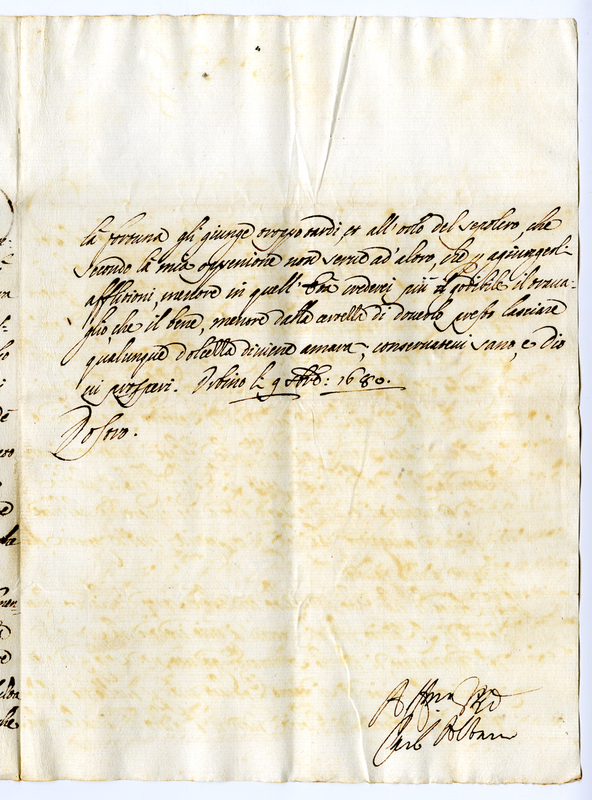 la fortuna gli giunge troppo tardi, et all'orlo del sepolcro, che
secondo la mia oppenione non serve ad' altro, che p agiungerli
afflitioni, mentre in quell' hora crederei più godibile il trava-
glio, che il bene, mentre dalla certezza di doverlo presto lasciare
qualunque dolcezza diviene amara; conservatevi sano, e Dio
vi prosperi. Urbino li 9 1680.
Dosoro.
Carlo Albani